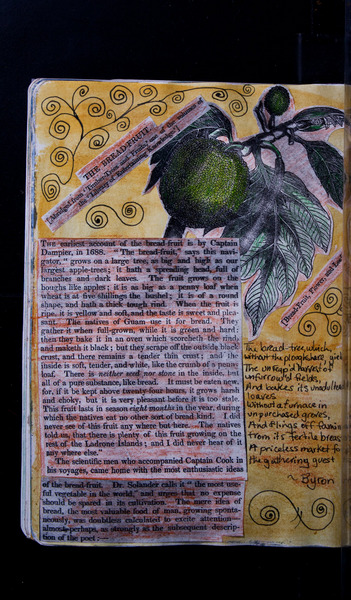 THE BREAD-FRUIT.
THE earliest account of the bread-fruit is by Captain
Dampier, in 1688. "The bread-fruit," says this navi-
gator, "grows on a large tree, as big and high as our
largest apple-trees; it hath a spreading head, full of
branches and dark leaves. The fruit grows on the
boughs like apples; it is as big as a penny loaf when
wheat is at five shillings the bushel; it is of a round
shape, and hath a thick tough rind. When the fruit is
ripe, it is yellow and soft, and the taste is sweet and plea-
sant. The natives of Guam use it for bread. They
gather it when full-grown, while it is green and hard;
then they bake it in an oven which scorcheth the rind
and maketh it black; but they scrape off the outside black
crust, and there remains a tender thin crust; and the
inside is soft, tender, and white, like the crumb of a penny
loaf. There is neither seed nor stone in the inside, but
all of a pure substance, like bread. It must be eaten new,
for, if it be kept above twenty-four hours, it grows harsh
and choky, but it is very pleasant before it is too stale.
This fruit lasts in season eight months in the year, during
which the natives eat no other sort of bread kind. I did
never see of this fruit any where but here. The natives
told us, that there is plenty of this fruit growing on the
rest of the Ladrone Islands; and I did never hear of it
any where else."
The scientific men who accompanied Captain Cook in
his voyages, came home with the most enthusiastic ideas
of the bread-fruit. Dr. Solander calls it "the most use-
ful vegetable in the world," and urges that no expense
should be spared in its cultivation. The mere idea of
bread, the most valuable food of man, growing sponta-
neously, was doubtless calculated to excite attention—
almost perhaps, as strongly as the subsequent descrip-
tion of the poet:—
The bread-tree, which,
without the ploughshare, yield
The unreap'd harvest of
unfurrow'd fields,
And bakes its unadulterated
loaves
Without a furnace in
unpurchased groves,
And flings off famine
From its fertile breast,
A priceless market for
the gathering guest
~ Byron